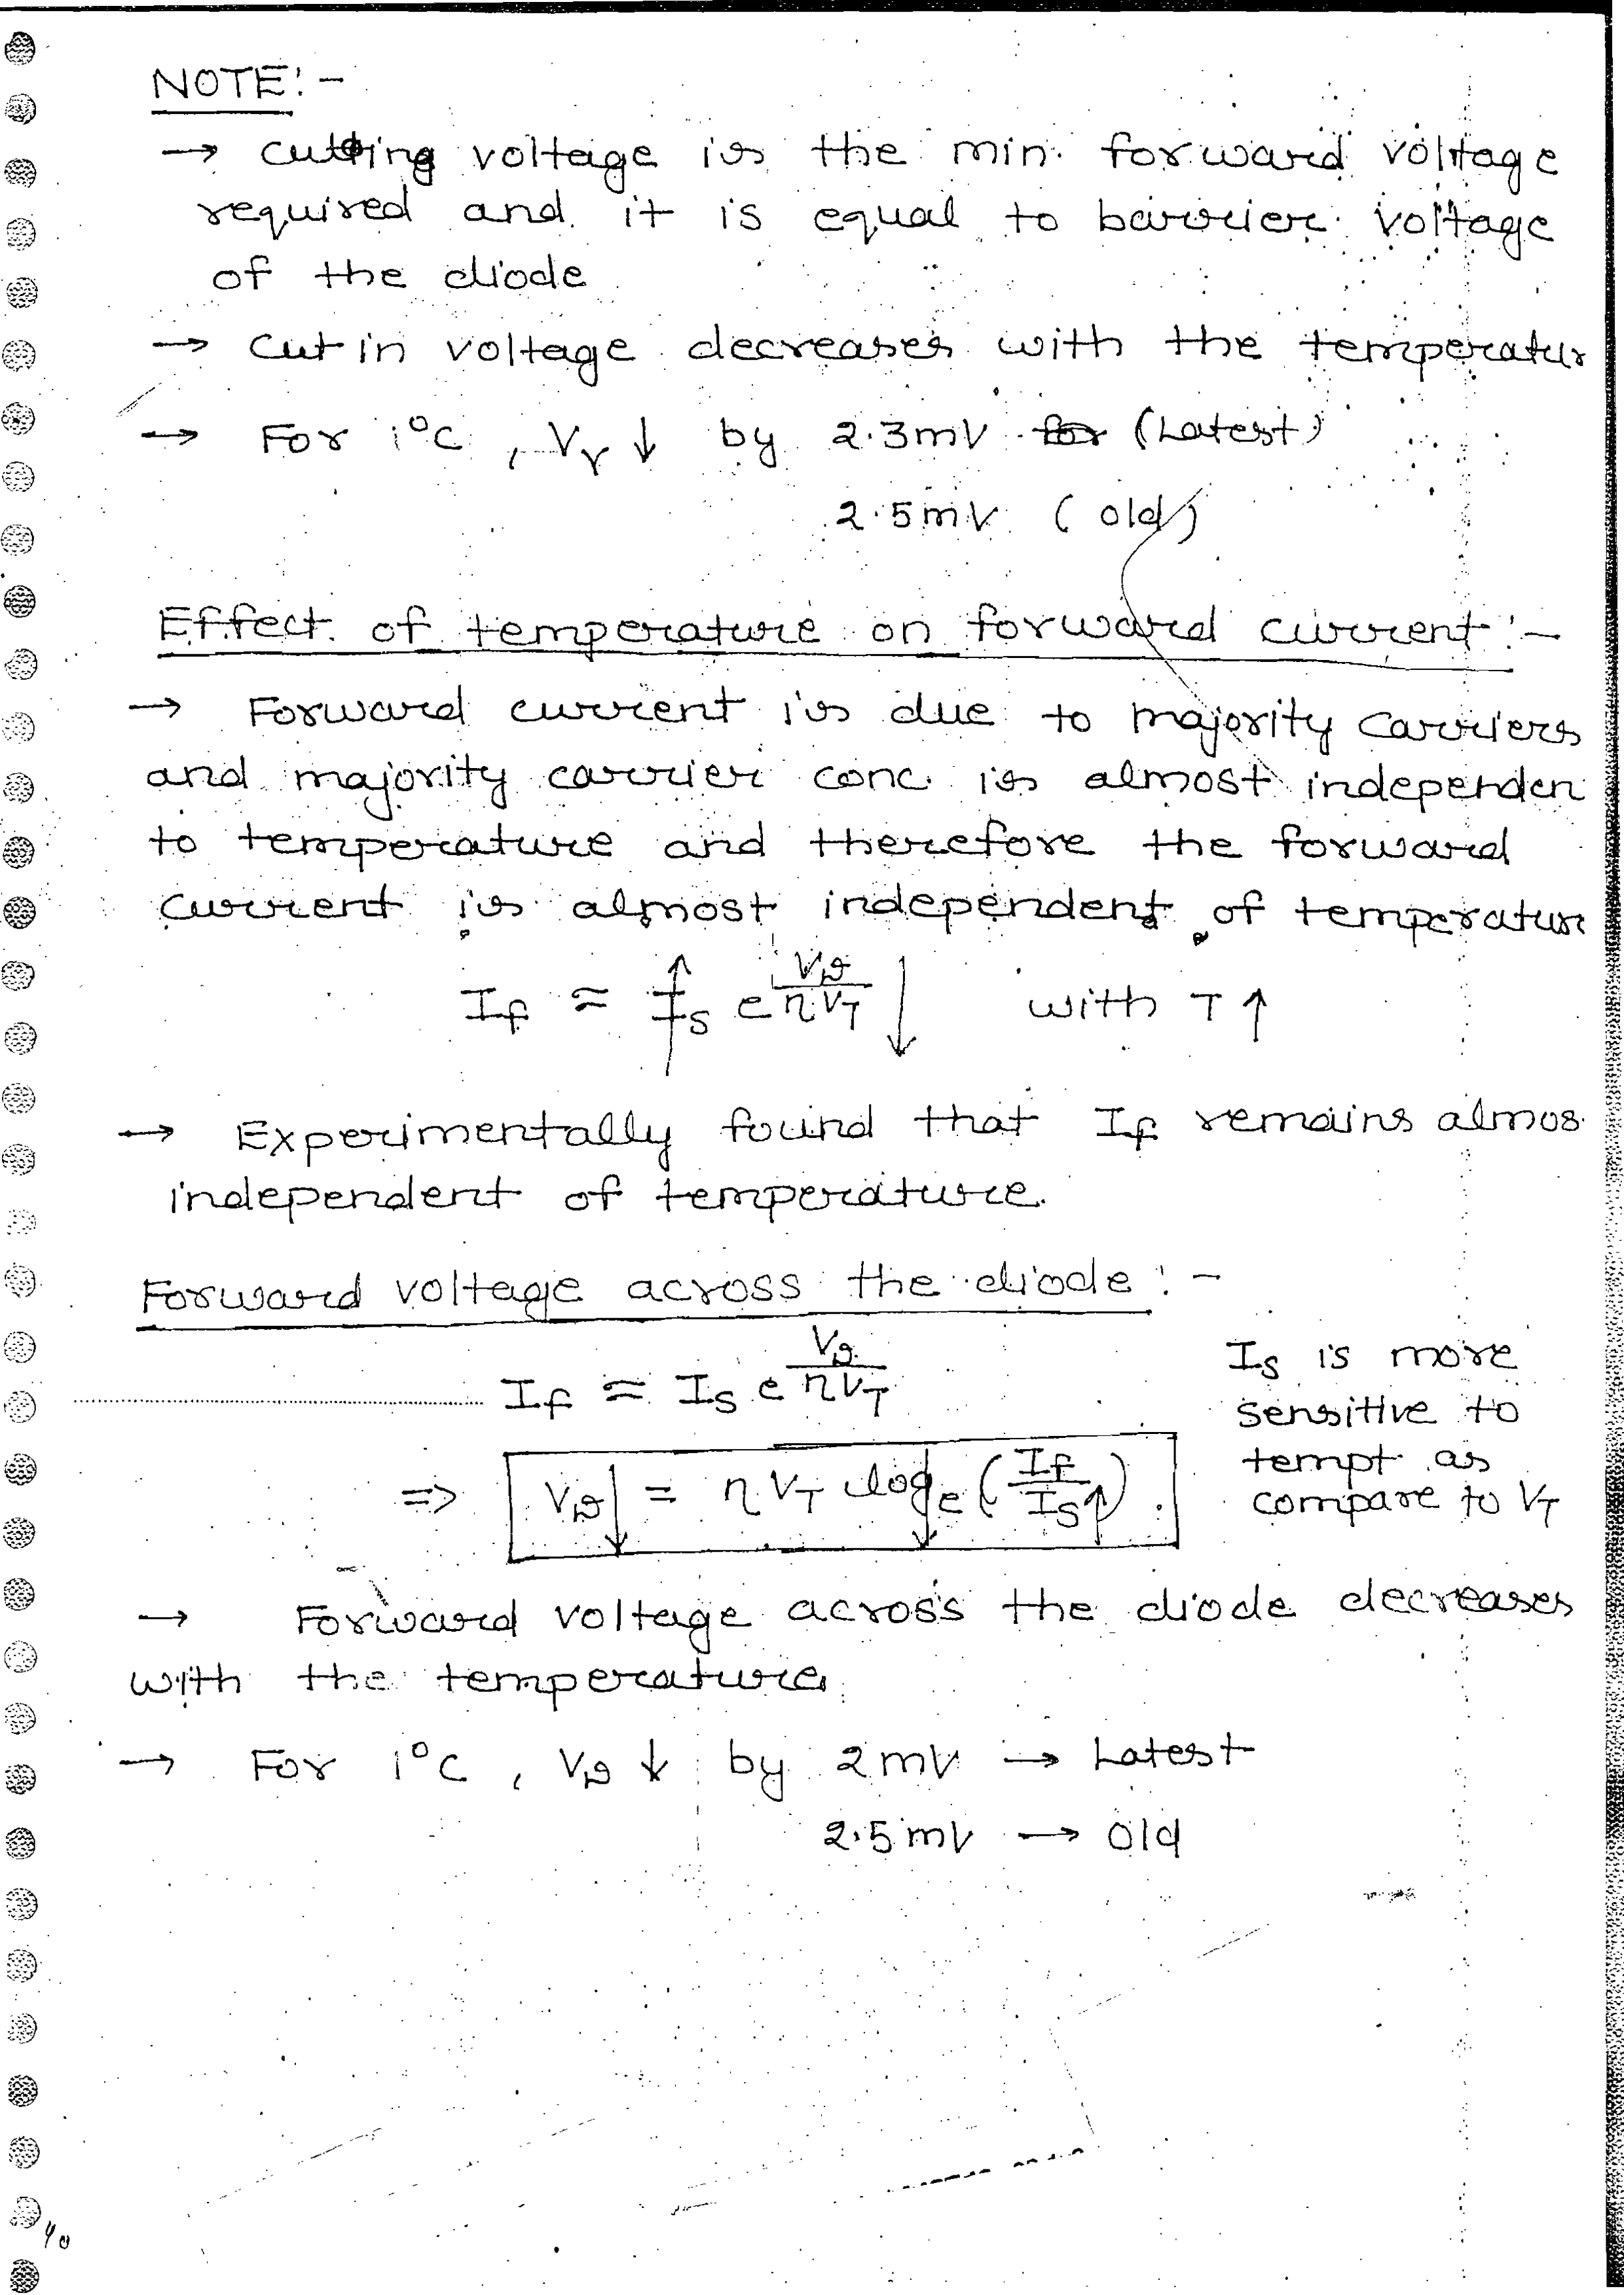 NOTE:-
→ cutting voltage is the min. forward voltage
required and it is equal to barrier voltage
of the diode
→ cut in voltage decreases with the temperatur
→ For 1°C, Vγ ↓ by 2.3mV for (Latest)
2.5mV (old)
Effect of temperature on forward current:-
→ Forward current is due to majority carriers
and majority carrier conc. is almost independen
to temperature and therefore the forward
current is almost independent of temperature
If ≈ Is↑ e^(VD/ηVT) ↓ with T↑
→ Experimentally found that If remains almos
independent of temperature.
Forward voltage across the diode:-
If ≈ Is e^(VD/ηVT)
Is is more
sensitive to
tempt as
compare to VT
⇒ VD↓ = ηVT loge↓ (If/Is↑)
→ Forward voltage across the diode decreases
with the temperature
→ For 1°C, VD ↓ by 2mV → Latest
2.5mV → old
40